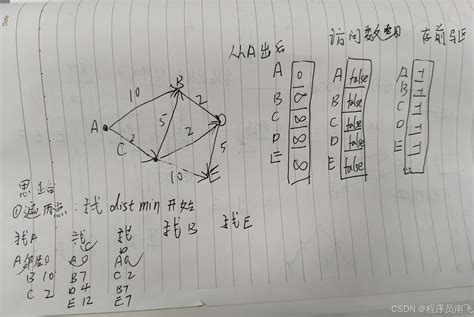 从A出发 访问数组 存前驱
A 0 A false A -1
B ∞ B false B -1
C ∞ C false C -1
D ∞ D false D -1
E ∞ E false E -1
B
10 2
A 5 D
C 2 2 5
10 E
思路
①遍历点:找 dist min 开始
找A 找C 找D 找B 找E
A 0 A0 A0
B 10 B7 C2
C 2 D4 B7
E12 E7
CSDN @程序员南飞